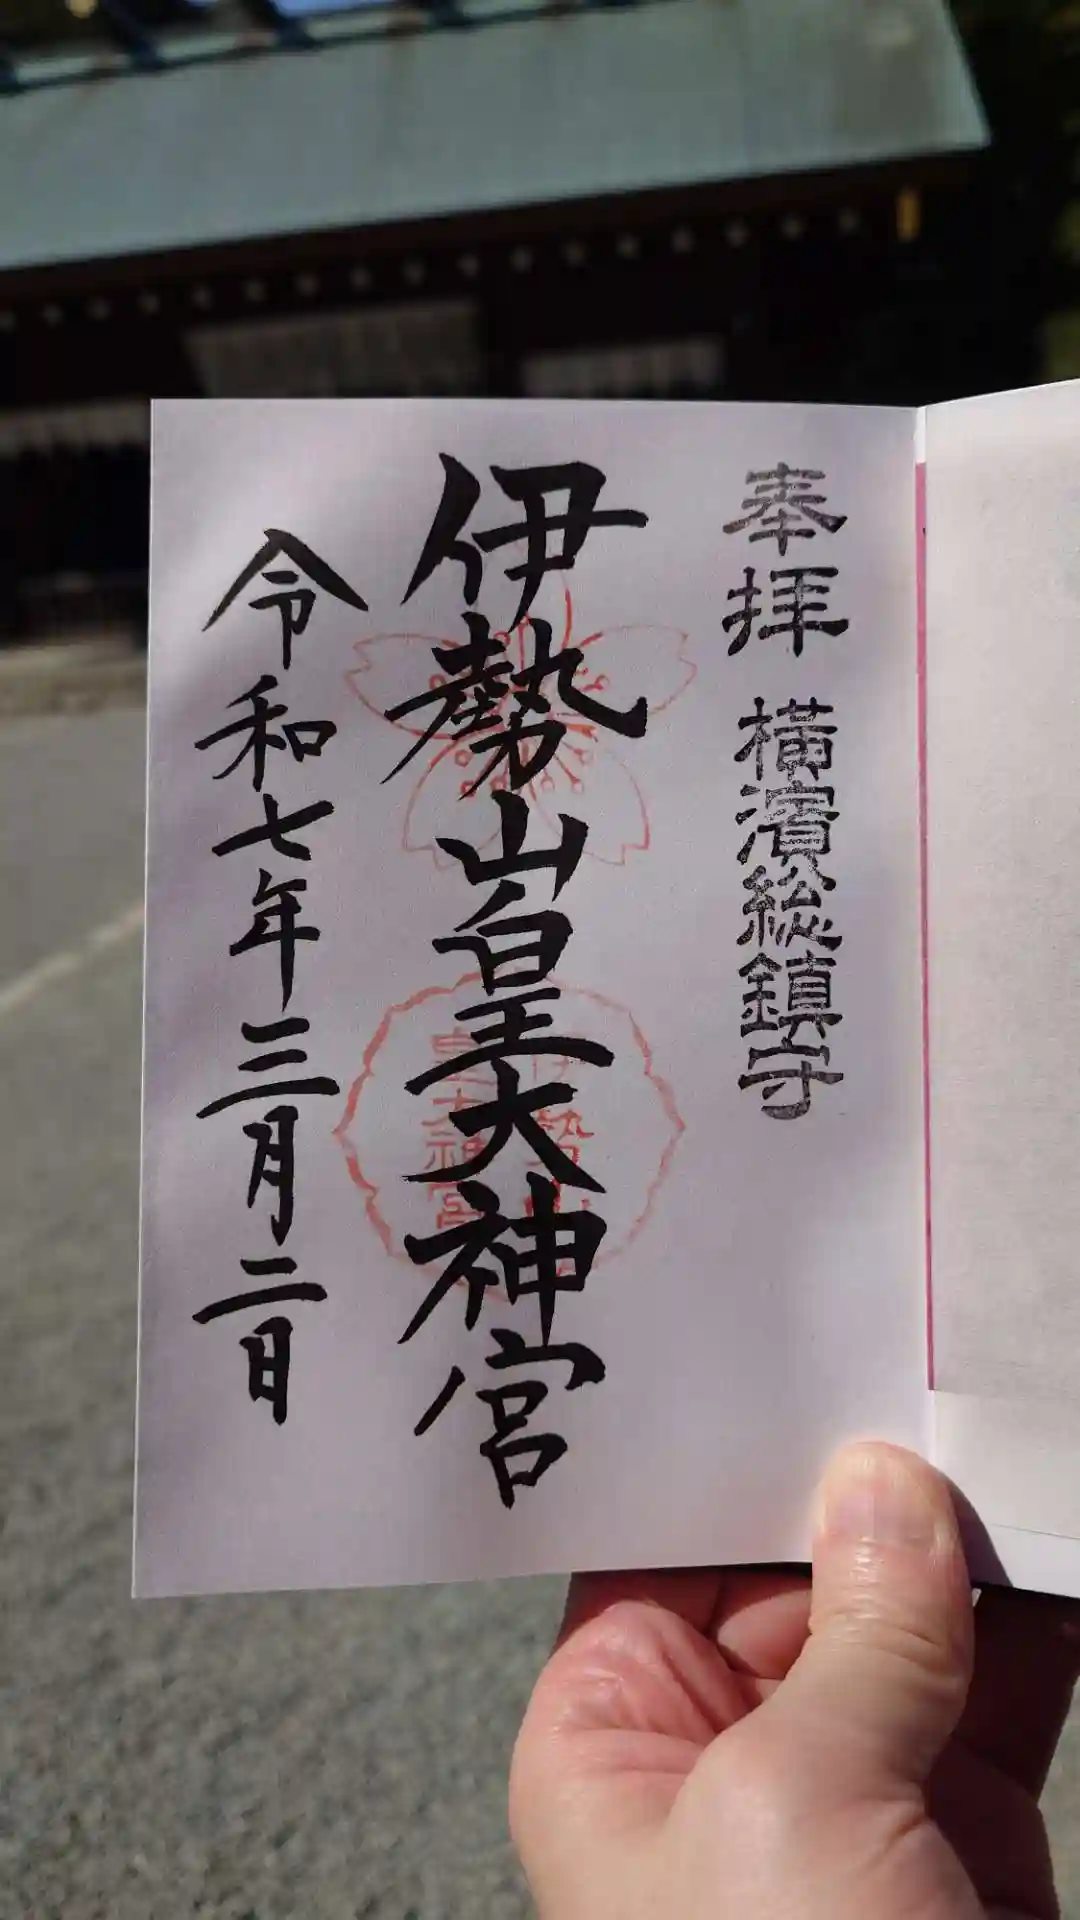 奉拝 横濱総鎮守
伊勢山皇大神宮
伊勢山
皇大神宮
令和七年三月二日